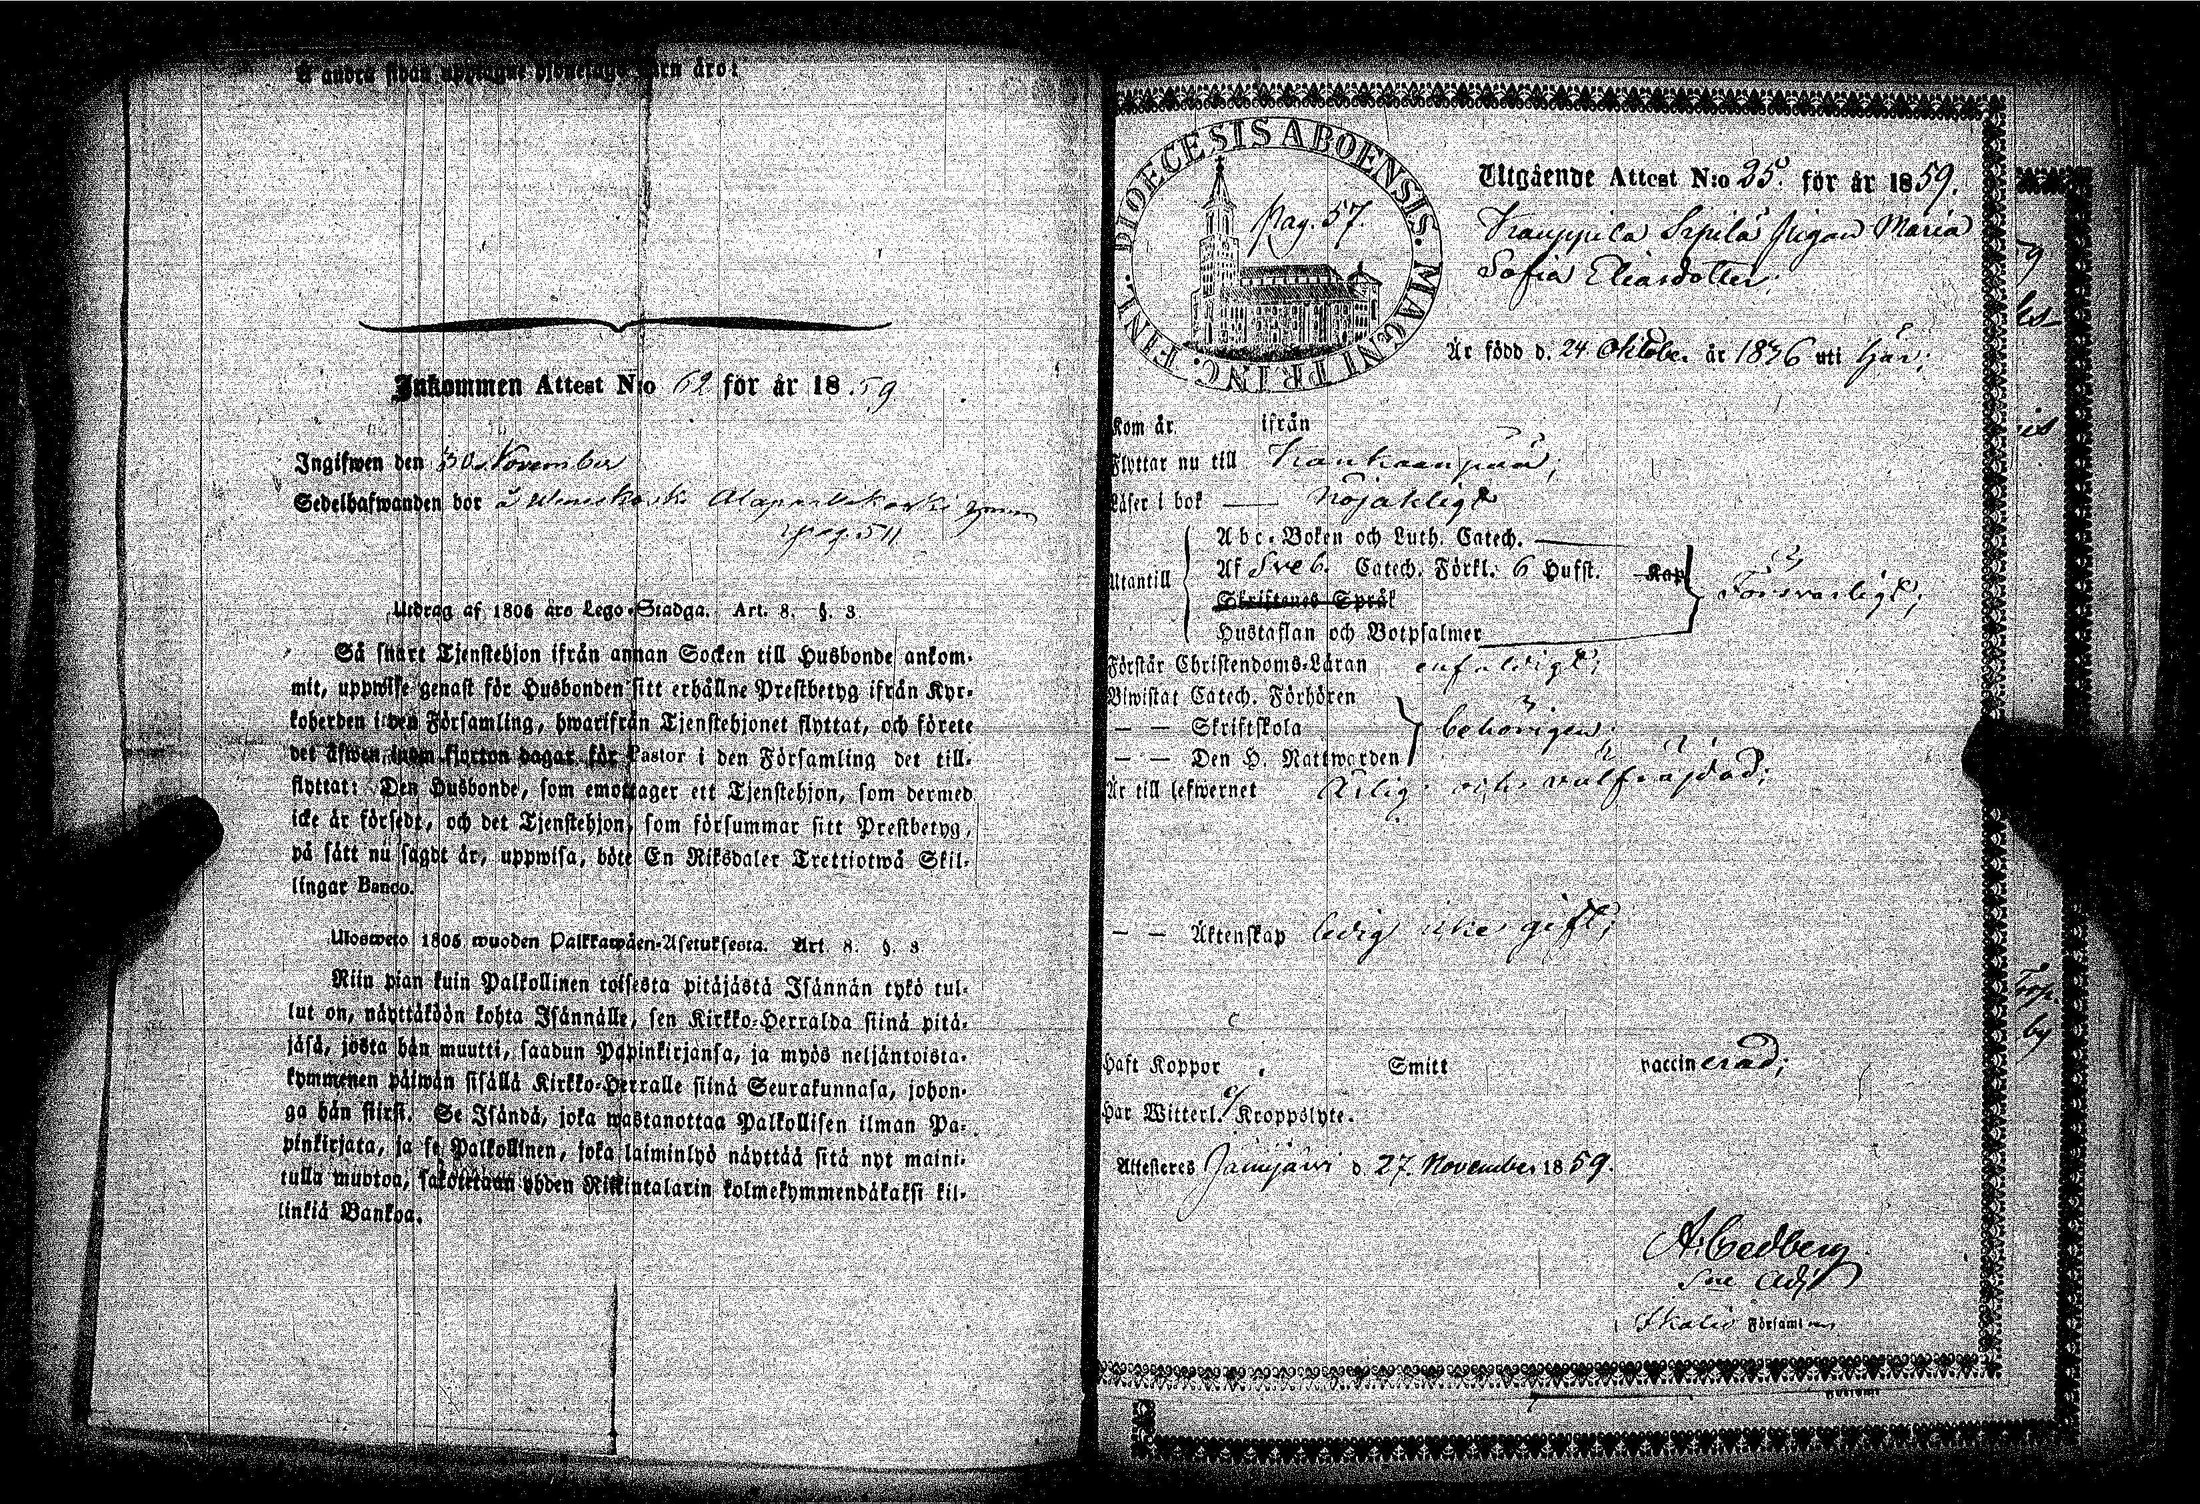 Å andra sidan upptagne hjonelags barn äro:
Inkommen Attest N:o 62 för år 18 59
Ingifwen den 30 November
Sedelhafwanden bor å
pag. 511
Utdrag af 1805 års Lego-Stadga. Art. 8. §. 3.
Så snart Tjenstehjon ifrån annan Socken till Husbonde ankom-
mit, uppwise genast för Husbonden sitt erhållne Prestbetyg ifrån Kyr-
koherden i den Församling, hwarifrån Tjenstehjonet flyttat, och förete
det äfwen inom fjorton dagar för Pastor i den Församling det till-
flyttat: Den Husbonde, som emottager ett Tjenstehjon, som dermed
icke är försedt, och det Tjenstehjon, som försummar sitt Prestbetyg,
på sätt nu sagdt är, uppwisa, böte En Riksdaler Trettiotwå Skil-
lingar Banco.
Ulosweto 1805 wuoden Palkkawäen-Asetuksesta. Art. 8. §. 3
Niin pian kuin Palkollinen toisesta pitäjästä Isännän tykö tul-
lut on, näyttäköön kohta Isännälle, sen Kirkko-Herralda siinä pitä-
jäsä, josta hän muutti, saadun Papinkirjansa, ja myös neljäntoista-
kymmenen päiwän sisällä Kirkko-Herralle siinä Seurakunnasa, johon-
ga hän siirsi. Se Isändä, joka wastanottaa Palkollisen ilman Pa-
pinkirjata, ja se Palkollinen, joka laiminlyö näyttää sitä nyt maini-
tulla muotoa, sakoitetaan yhden Riikintalarin kolmekymmendäkaksi kil-
linkiä Bankoa.
DIOECESIS ABOENSIS. MAGNI PRINC. FINL.
pag. 57.
Utgående Attest N:o 25. för år 1859.
Kauppila Sipilä Pigan Maria
Sofia Eliasdotter;
Är född d. 24 Oktober år 1836 uti här;
Kom år ifrån
Flyttar nu till Kankaanpää;
Läser i bok — nöjaktigt
Utantill
Abc-Boken och Luth. Catech.
Af Sveb. Catech. Förkl. 6 Hufst. Kap
Skriftenes Språk
Hustaflan och Botpsalmer
Försvarligt;
Förstår Christendoms-Läran enfaldigt;
Biwistat Catech. Förhören
— — Skriftskola
— — Den H. Nattwarden
behörigen;
Är till lefwernet Ärlig och välfräjdad;
— — Äktenskap ledig icke gift;
Haft Koppor Smitt vaccinerad;
Har Witterl. ej Kroppslyte.
Attesteres Jämijärvi d 27. November 1859.
A. Cedberg
Sne Adj
Ikalis Församling